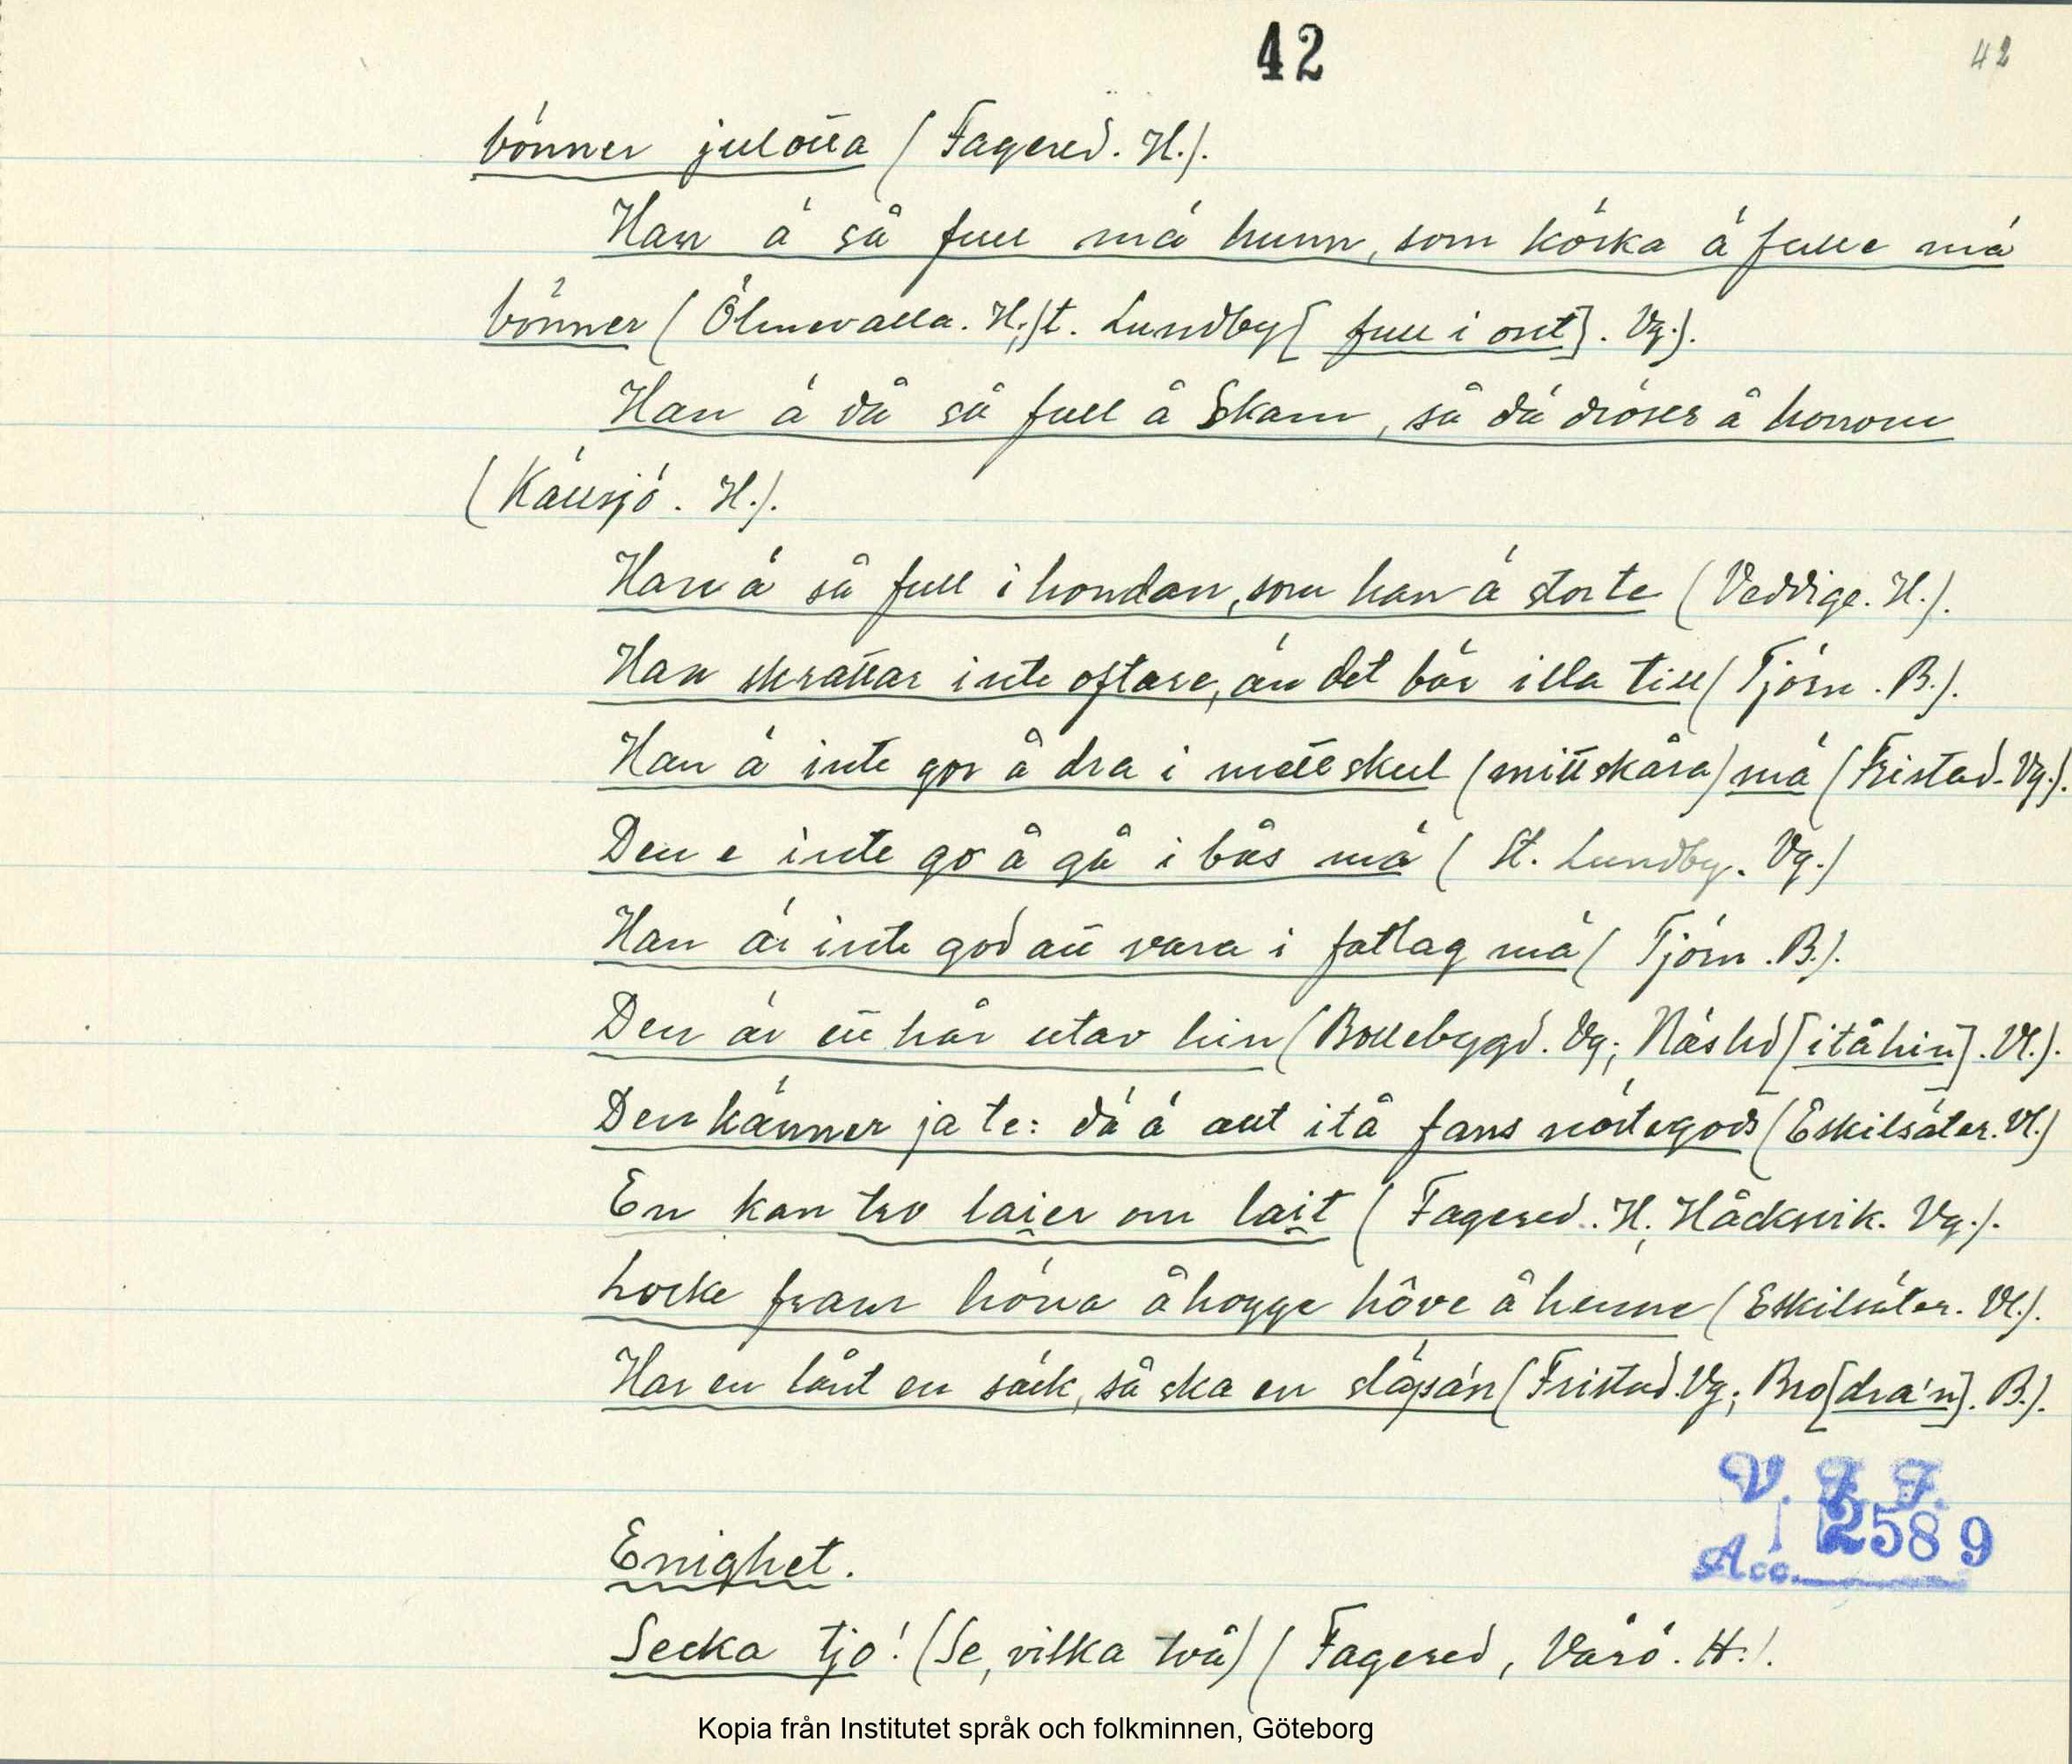 42
42
bönner julotta (Fagered. H.).
Han ä så full mä hunn, som körka ä fulle mä
bönner (Ölmevalla. H.; St. Lundby [full i ont]. Vg.).
Han ä då så full å Skam, så dä dröser å honom
(Källsjö. H.).
Han ä så full i hondan, som han ä storte (Veddige. H.).
Han skrattar inte oftare, än det bär illa till (Tjörn. B.).
Han ä inte gor å dra i metteskul (mittskåra) mä (Fristad. Vg.).
Den e inte go å gå i bås mä (St. Lundby. Vg.)
Han är inte god att vara i fatlag mä (Tjörn. B.).
Den är ett hår utav hin (Bollebygd. Vg.; Näshd [itå hin]. Vl.).
Den känner ja te: dä ä aut itå fans nötegods (Eskilsäter. Vl.)
En kan tro laier om lait (Fagered. H; Håcksvik. Vg.).
Locke fram höna å hogge hôve å henne (Eskilsäter. Vl.).
Har en lånt en säck, så ska en släpa'n (Fristad. Vg.; Bro [dra'n]. B.).
V. F. F.
Acc. 2589
Enighet.
Secka tjo! (Se, vilka två) (Fagered, Värö. H.).
Kopia från Institutet språk och folkminnen, Göteborg